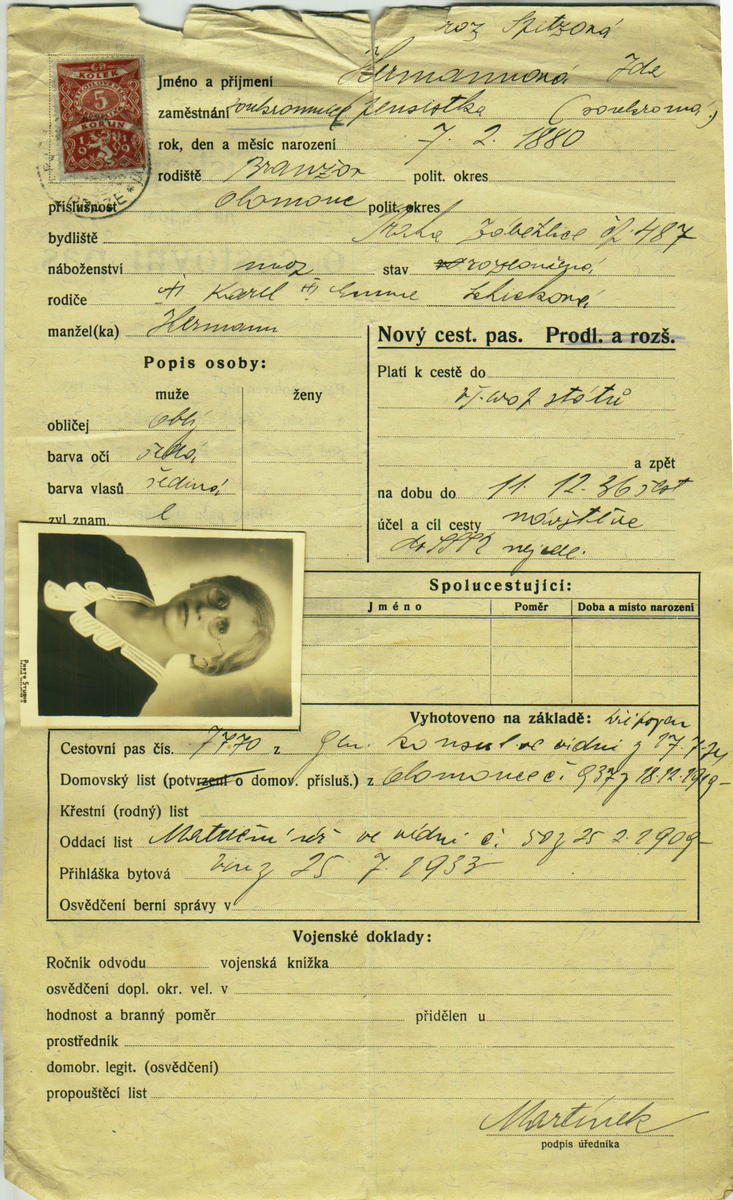 roz Spitzová
KOLEK
5
KORUN
Jméno a příjmení Heřmannová Ida
zaměstnání soukromnice (pensistka (soukromá.)
rok, den a měsíc narození 7. 2. 1880
rodiště polit. okres
příslušnost Olomouc polit. okres
bydliště Praha Záběhlice čp. 487
náboženství moz stav rozloučená
rodiče Karel Emma
manžel(ka) Hermann
Nový cest. pas. Prodl. a rozš.
Popis osoby:
muže ženy
Platí k cestě do
států
obličej obl
barva očí šedá
barva vlasů šedivá
zvl znam.
a zpět
na dobu do 11. 12. 36
účel a cíl cesty návštěva
do SSSR nejede.
PHOTO STUDIO
Spolucestující:
Jméno Poměr Doba a místo narození
Vyhotoveno na základě:
Cestovní pas čís. 7770 z Gen. konsul. ve Vídni z 17. 7.
Domovský list (potvrzení o domov. přísluš.) z Olomouce č. 937 z 18. 12. 1919
Křestní (rodný) list
Oddací list ve Vídni č. 50 z 25 2. 1909
Přihláška bytová 25. 7. 1933
Osvědčení berní správy v
Vojenské doklady:
Ročník odvodu vojenská knížka
osvědčení dopl. okr. vel. v
hodnost a branný poměr přidělen u
prostředník
domobr. legit. (osvědčení)
propouštěcí list
Martínek
podpis úředníka